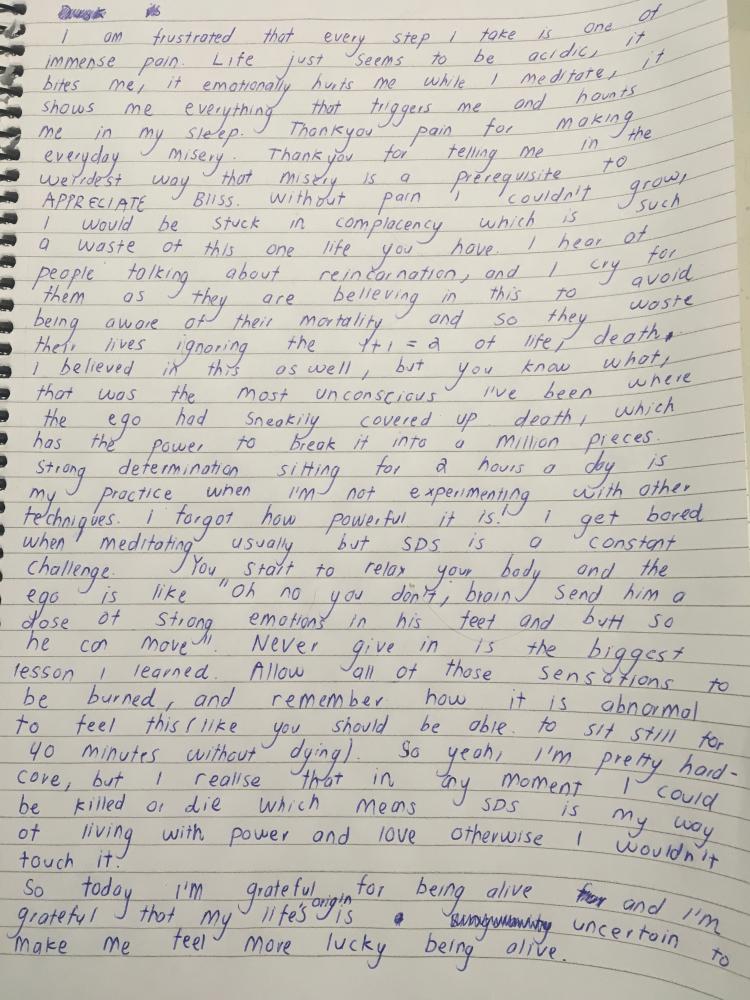 is
I am frustrated that every step I take is one of
immense pain. Life just seems to be acidic, it
bites me, it emotionally hurts me while I meditate, it
shows me everything that triggers me and haunts
me in my sleep. Thankyou pain for making
everyday misery. Thankyou for telling me in the
weirdest way that misery is a prerequisite to
APPRECIATE Bliss. Without pain I couldn't grow,
I would be stuck in complacency which is such
a waste of this one life you have. I hear of
people talking about reincarnation, and I cry for
them as they are believing in this to avoid
being aware of their mortality and so they waste
their lives ignoring the 1+1=2 of life, death.
I believed in this as well, but you know what,
that was the most unconscious I've been where
the ego had sneakily covered up death, which
has the power to break it into a million pieces.
Strong determination sitting for 2 hours a day is
my practice when I'm not experimenting with other
techniques. I forgot how powerful it is! I get bored
when meditating usually but SDS is a constant
challenge. You start to relax your body and the
ego is like "Oh no you don't, brain send him a
dose of strong emotions in his feet and butt so
he can move". Never give in is the biggest
lesson I learned. Allow all of those sensations to
be burned, and remember how it is abnormal
to feel this (like you should be able to sit still for
40 minutes without dying). So yeah, I'm pretty hard-
core, but I realise that in any moment I could
be killed or die which means SDS is my way
of living with power and love otherwise I wouldn't
touch it.
So today I'm grateful for being alive and I'm
grateful that my life's origin is uncertain to
make me feel more lucky being alive.